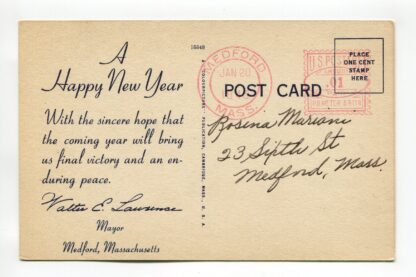 A
Happy New Year
With the sincere hope that
the coming year will bring
us final victory and an en-
during peace.
Walter E. Lawrence
Mayor
Medford, Massachusetts
16648
MEDFORD
JAN 20
MASS.
U.S. POSTAGE
01
PLACE
ONE CENT
STAMP
HERE
POST CARD
Rosina Mariani
23 Sixth St
Medford, Mass.